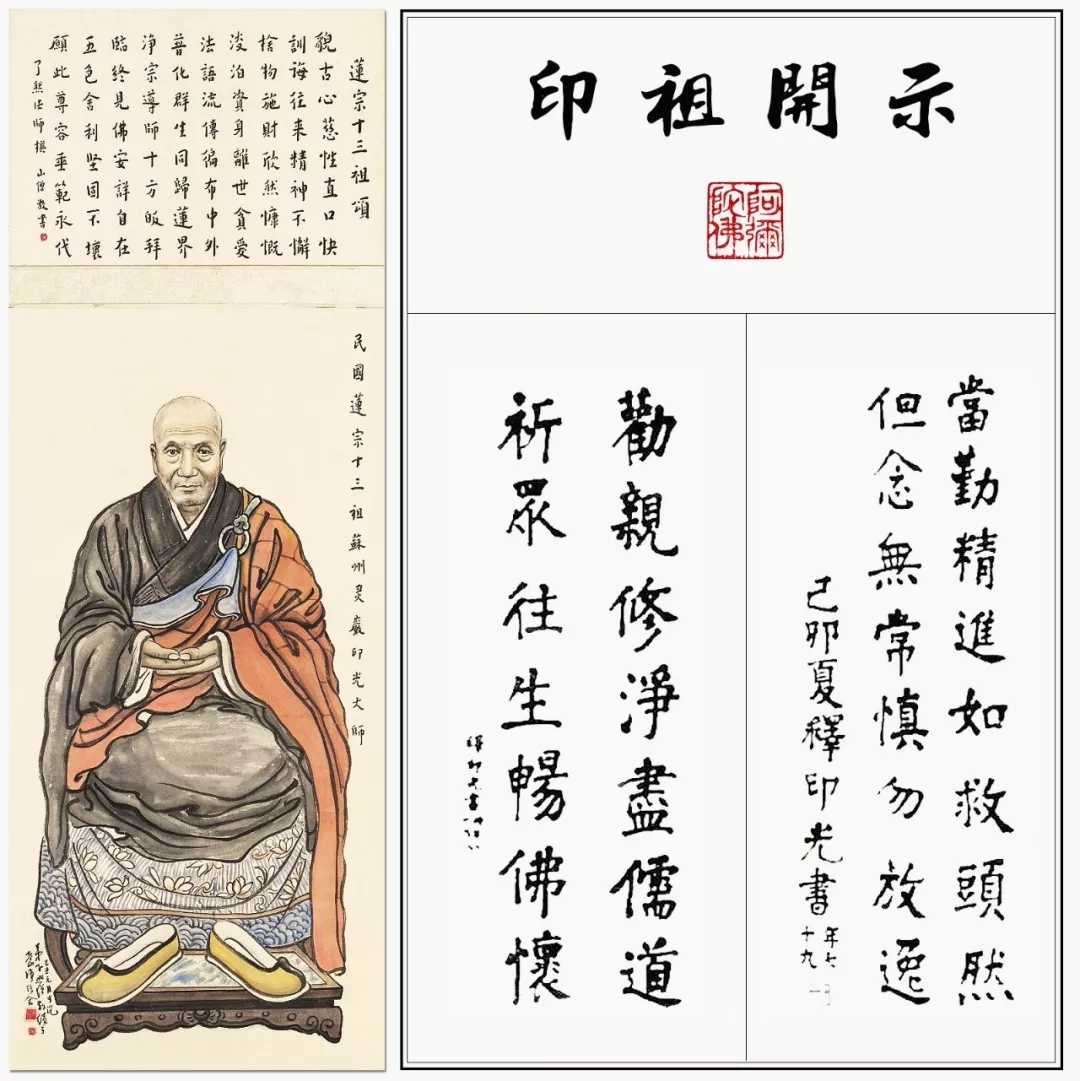 蓮宗十三祖頌
貌古心慈性直口快
訓誨往来精神不懈
捨物施財欣然慷慨
淡泊資身離世貪愛
法語流傳徧布中外
普化群生同歸蓮界
净宗導師十方皈拜
臨終見佛安詳自在
五色舍利坚固不壞
願此尊容垂範永代
了然法師撰 山僧敬書
民國蓮宗十三祖蘇州灵巖印光大師
印祖開示
阿彌陀佛
當勤精進如救頭然
但念無常慎勿放逸
己卯夏釋印光書
年七
十九
勸親修淨盡儒道
祈眾往生暢佛懷
釋印光書